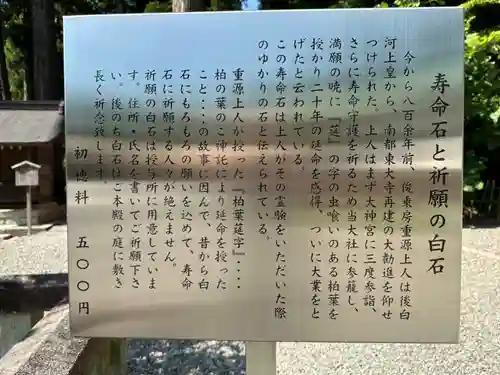 寿命石と祈願の白石
今から八百余年前、俊乗房重源上人は後白
河上皇から、南都東大寺再建の大勧進を仰せ
つけられた。上人はまず大神宮に三度参詣、
さらに寿命守護を祈るため当大社に参籠し、
満願の暁に『莚』の字の虫喰いのある柏葉を
授かり二十年の延命を感得、ついに大業をと
げたと云われている。
この寿命石は上人がその霊験をいただいた際
のゆかりの石と伝えられている。
重源上人が授った『柏葉莚字』・・・・
柏の葉のご神託により延命を授った
こと・・・の故事に因んで、昔から白
石にもろもろの願いを込めて、寿命
石に祈願する人々が絶えません。
祈願の白石は授与所に用意していま
す。住所・氏名を書いてご祈願下さ
い。後のち白石はご本殿の庭に敷き
長く祈念致します。
初穂料 五〇〇円